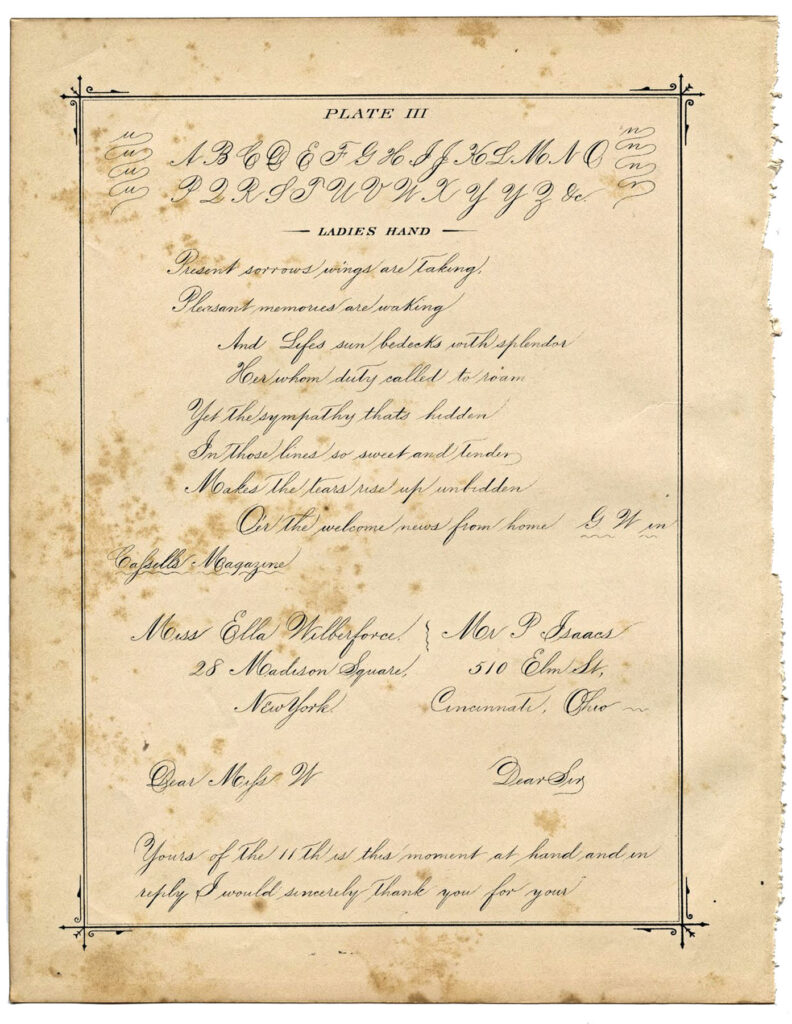 PLATE III
u n
u A B C D E F G H I J K L M N O n
u n
u P Q R S T U V W X Y Y Z &c. n
LADIES HAND
Present sorrows wings are taking,
Pleasant memories are waking
And Lifes sun bedecks with splendor
Her whom duty called to roam
Yet the sympathy thats hidden
In those lines so sweet and tender
Makes the tears rise up unbidden
O'er the welcome news from home G W in
Caſsells Magazine
Miss Ella Wilberforce, } Mr P Isaacs
28 Madison Square, 510 Elm St,
New York. Cincinnati, Ohio
Dear Miſs W Dear Sir
Yours of the 11th is this moment at hand and in
reply I would sincerely thank you for your